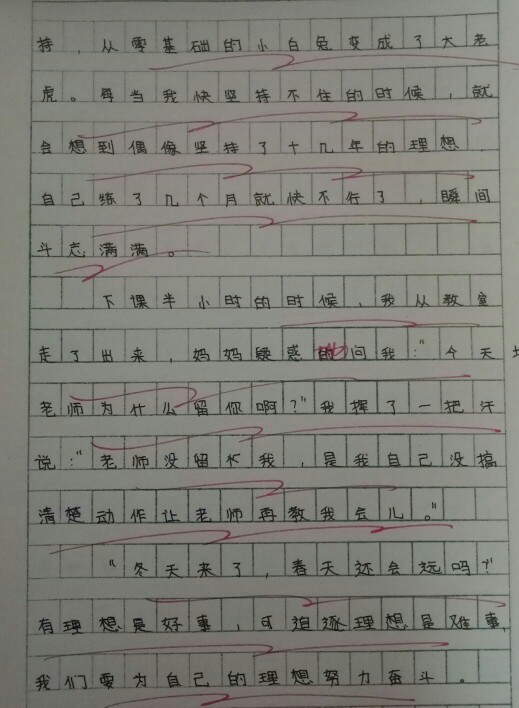 持，从零基础的小白兔变成了大老
虎。每当我快坚持不住的时候，就
会想到偶像坚持了十几年的理想，
自己练了几个月就快不行了，瞬间
斗志满满。
下课半小时的时候，我从教室
走了出来，妈妈疑惑地问我：“今天
老师为什么留你啊？”我挥了一把汗
说：“老师没留我，是我自己没搞
清楚动作让老师再教我会儿。”
“冬天来了，春天还会远吗？”
有理想是好事，可追逐理想是难事，
我们要为自己的理想努力奋斗。